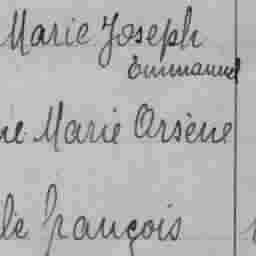 Marie Joseph
Emmanuel
ne Marie Arsène
lé françois